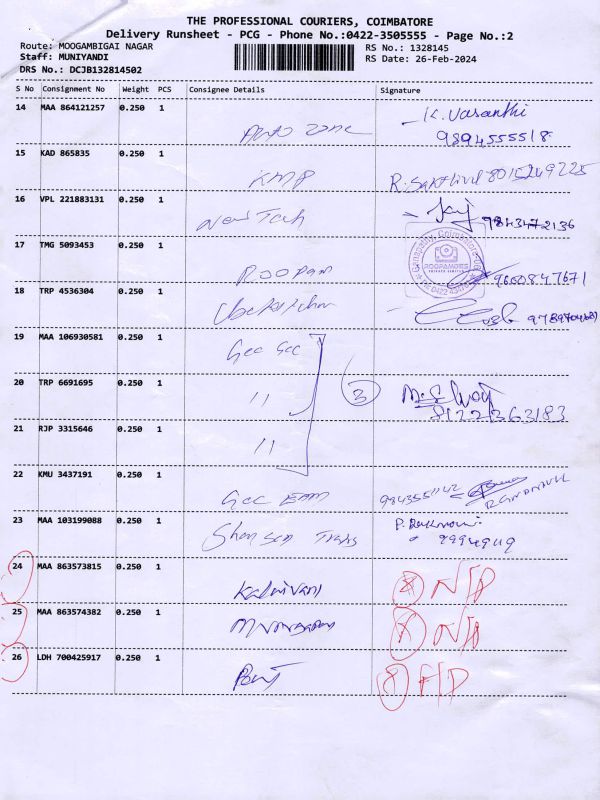 THE PROFESSIONAL COURIERS, COIMBATORE
Delivery Runsheet - PCG - Phone No.:0422-3505555 - Page No.:2
Route: MOOGAMBIGAI NAGAR
RS No.: 1328145
Staff: MUNIYANDI
RS Date: 26-Feb-2024
DRS No.: DCJB132814502
S No Consignment No Weight PCS Consignee Details Signature
14 MAA 864121257 0.250 1 Auto Zone K. Vasanthi
9894555518
15 KAD 865835 0.250 1 KMP R. Sakthivel 8015249225
16 VPL 221883131 0.250 1 New Tech
17 TMG 5093453 0.250 1 Roopam 9600847671
18 TRP 4536304 0.250 1
19 MAA 106930581 0.250 1 Gee Gee
20 TRP 6691695 0.250 1 11 3
8122363183
21 RJP 3315646 0.250 1 11
22 KMU 3437191 0.250 1 Gee Emm
23 MAA 103199088 0.250 1 Shan Sen Trans
24 MAA 863573815 0.250 1 Kalaivani N/D
25 MAA 863574382 0.250 1 N/D
26 LDH 700425917 0.250 1 F/D